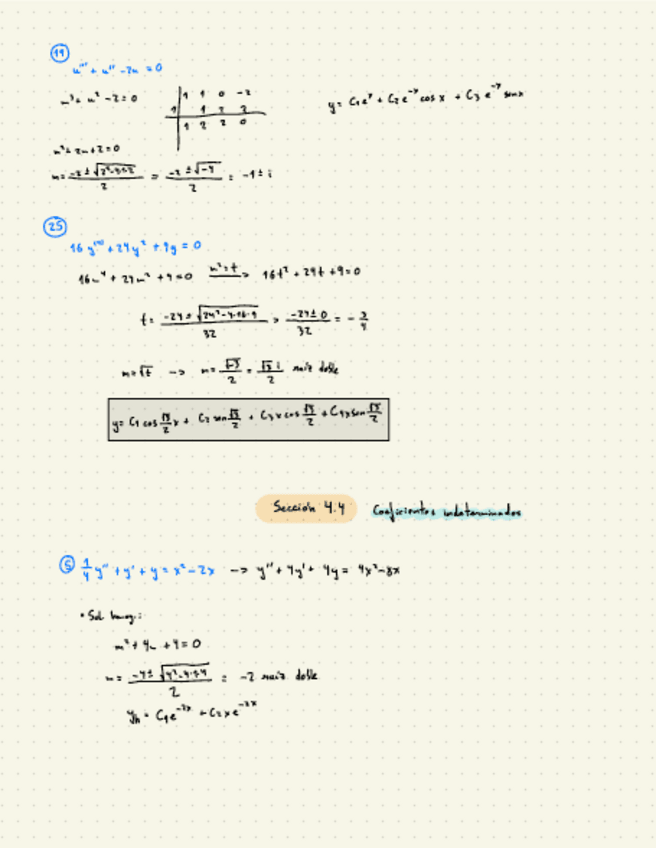 19
u''' + u'' - 2u = 0
m³ + m² - 2 = 0
1 1 0 -2
1 1 2 2
1 2 2 0
y = C₁eˣ + C₂e⁻ˣ cos x + C₃ e⁻ˣ sen x
m² + 2m + 2 = 0
m = (-2 ± √(2²-4·2))/2 = (-2 ± √-4)/2 = -1 ± i
25
16 y'''' + 24 y² + 9y = 0
16m⁴ + 24m² + 9 = 0 m²=t -> 16t² + 24t + 9 = 0
t = (-24 ± √(24²-4·16·9))/32 = (-24 ± 0)/32 = -3/4
m = √t -> m = √-3/2 = √3 i/2 raíz doble
y = C₁ cos √3/2 x + C₂ sen √3/2 + C₃ x cos √3/2 + C₄ x sen √3/2
Sección 4.4 Coeficientes indeterminados
5 1/4 y'' + y' + y = x² - 2x -> y'' + 4y' + 4y = 4x² - 8x
• Sol homog:
m² + 4m + 4 = 0
m = (-4 ± √(4²-4·4))/2 = -2 raíz doble
yh = C₁e⁻²ˣ + C₂xe⁻²ˣ